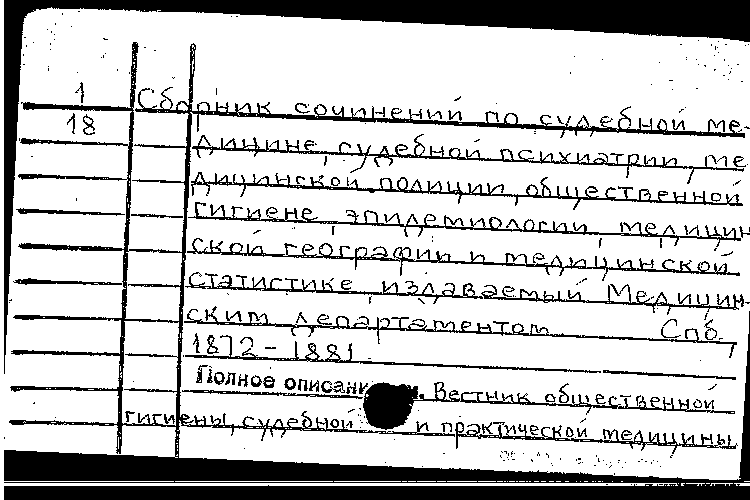 1
18
Сборник сочинений по судебной ме-
дицине, судебной психиатрии, ме
дицинской полиции, общественной
гигиене, эпидемиологии, медицин
ской географии и медицинской
статистике, издаваемый Медицин-
ским департаментом. Спб,
1872-1881.
Полное Вестник общественной
гигиены, судебной и практической медицины